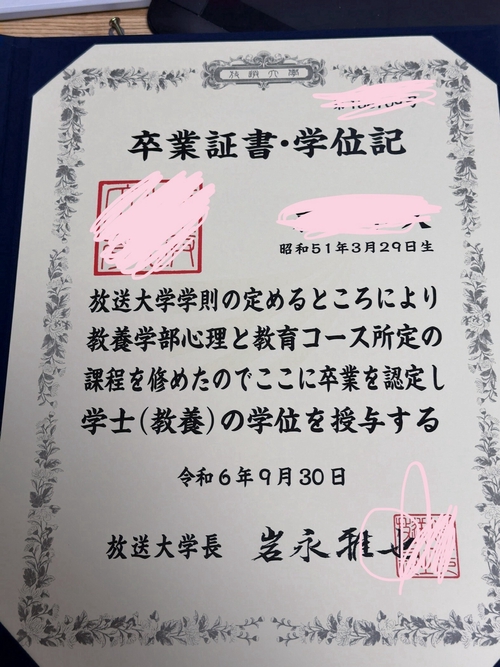 放送大學
卒業証書・学位記
昭和51年3月29日生
放送大学学則の定めるところにより
教養学部心理と教育コース所定の
課程を修めたのでここに卒業を認定し
学士(教養)の学位を授与する
令和6年9月30日
放送大学長 岩永雅也